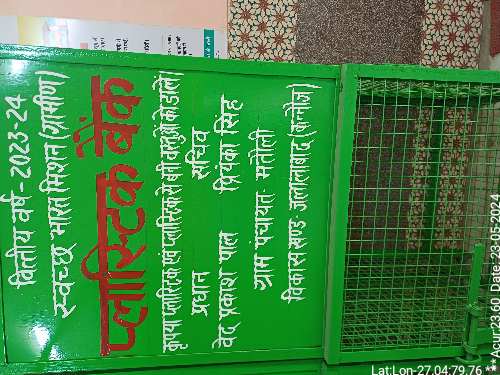 वित्तीय वर्ष-2023-24
स्वच्छ भारत मिशन (ग्रामीण)
प्लास्टिक बैंक
कृपया प्लास्टिक एवं प्लास्टिक से बनी वस्तुओं को डाले।
प्रधान सचिव
वेद प्रकाश पाल प्रियंका सिंह
ग्राम पंचायत- मतौली
विकास खण्ड- जलालाबाद (कन्नौज)
Lat:Lon-27.04:79.76 **